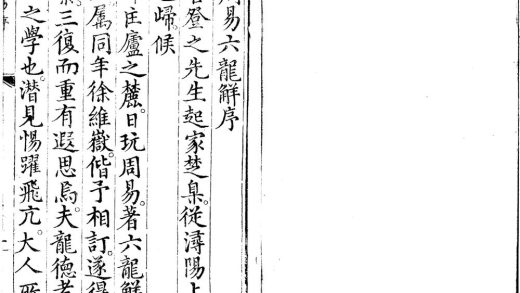 周易六龍觧序
登之先生起家楚臬。從潯陽上
歸。候
匡廬之麓。日玩周易。著六龍觧
屬同年徐維嶽。偕予相訂。遂得
三復而重有遐思焉。夫龍德者
之學也。潛見惕躍飛亢。大人所